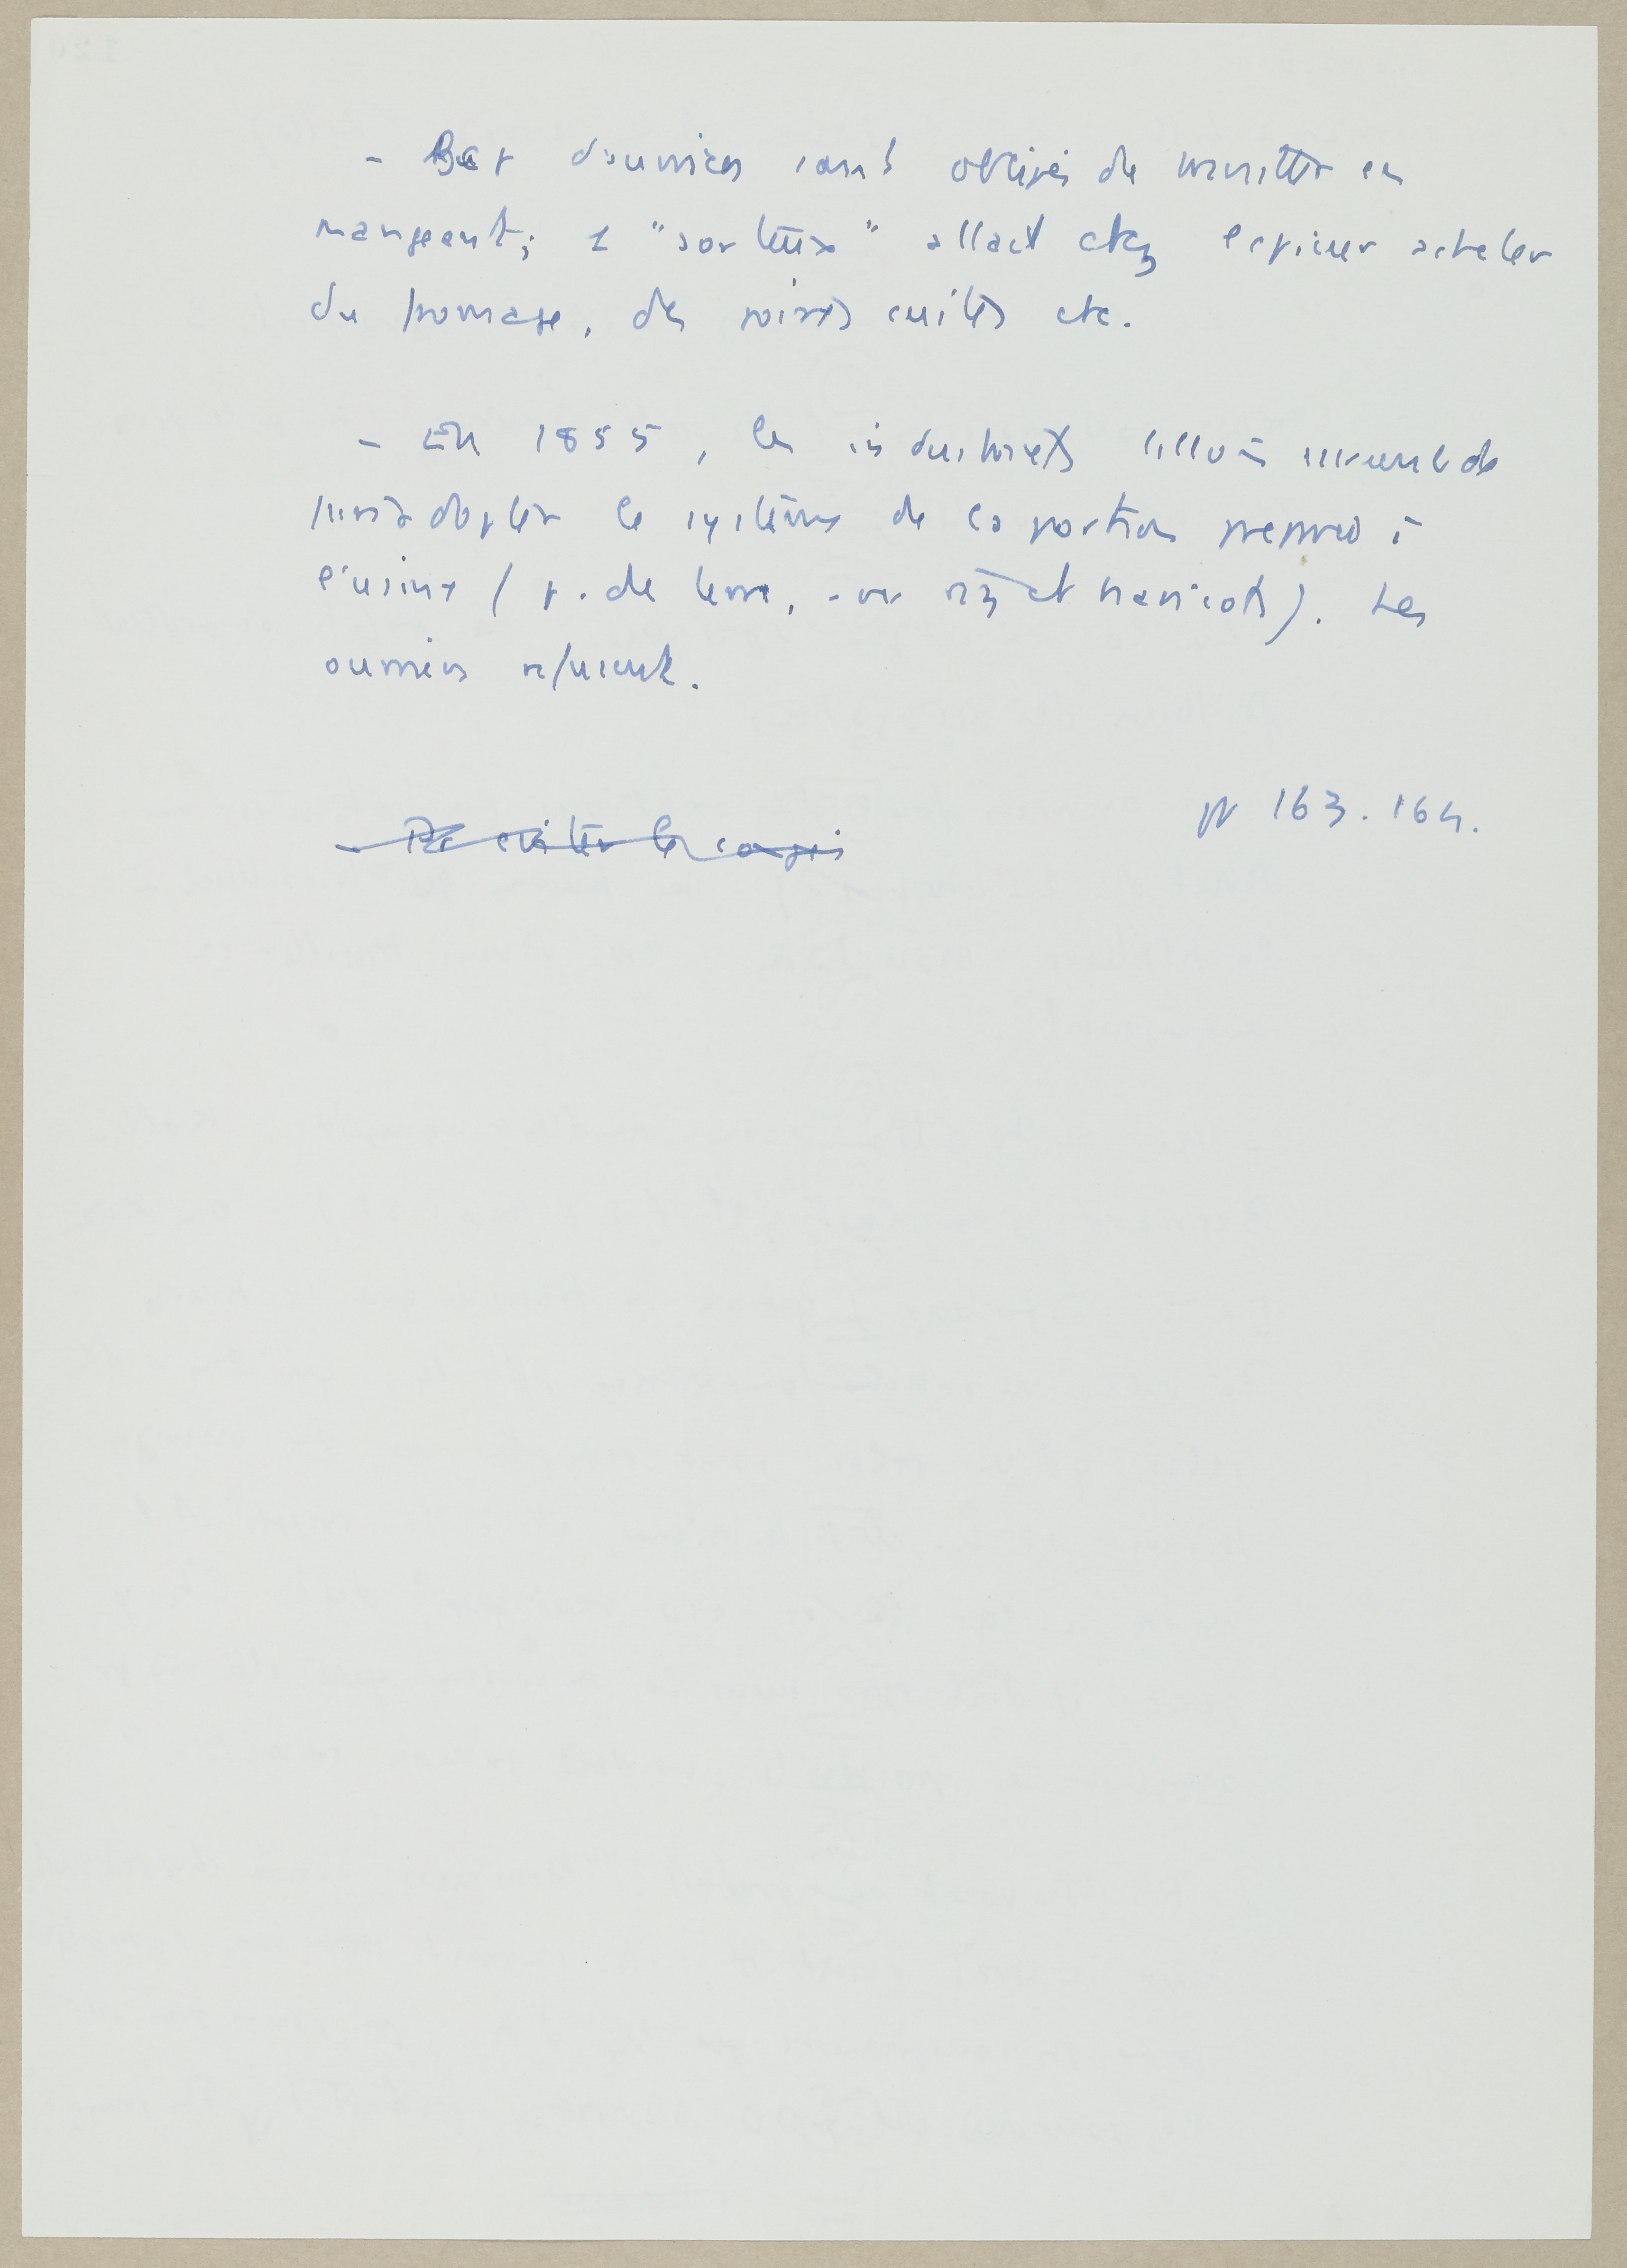 - Bcp d'ouvriers sont obligés de travailler en
mangeant; 1 "sorteux" allait chez l'épicier acheter
du fromage, des poires cuites etc.
- En 1855, les industriels lillois essaient de
faire adopter le système de la portion préparée à
l'usine (p. de terre, riz et haricots). Les
ouvriers refusent.
pp 163. 164.